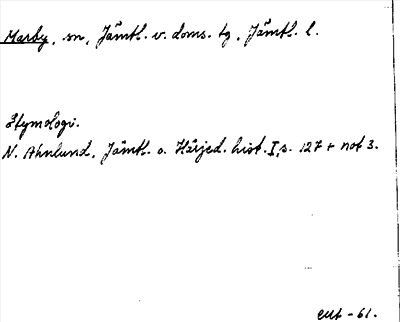 Marby, sn, Jämtl. v. doms. tg, Jämtl. l.
Etymologi.
N. Ahnlund, Jämtl. o. Härjed. hist. I, s. 127 + not 3.
-61.